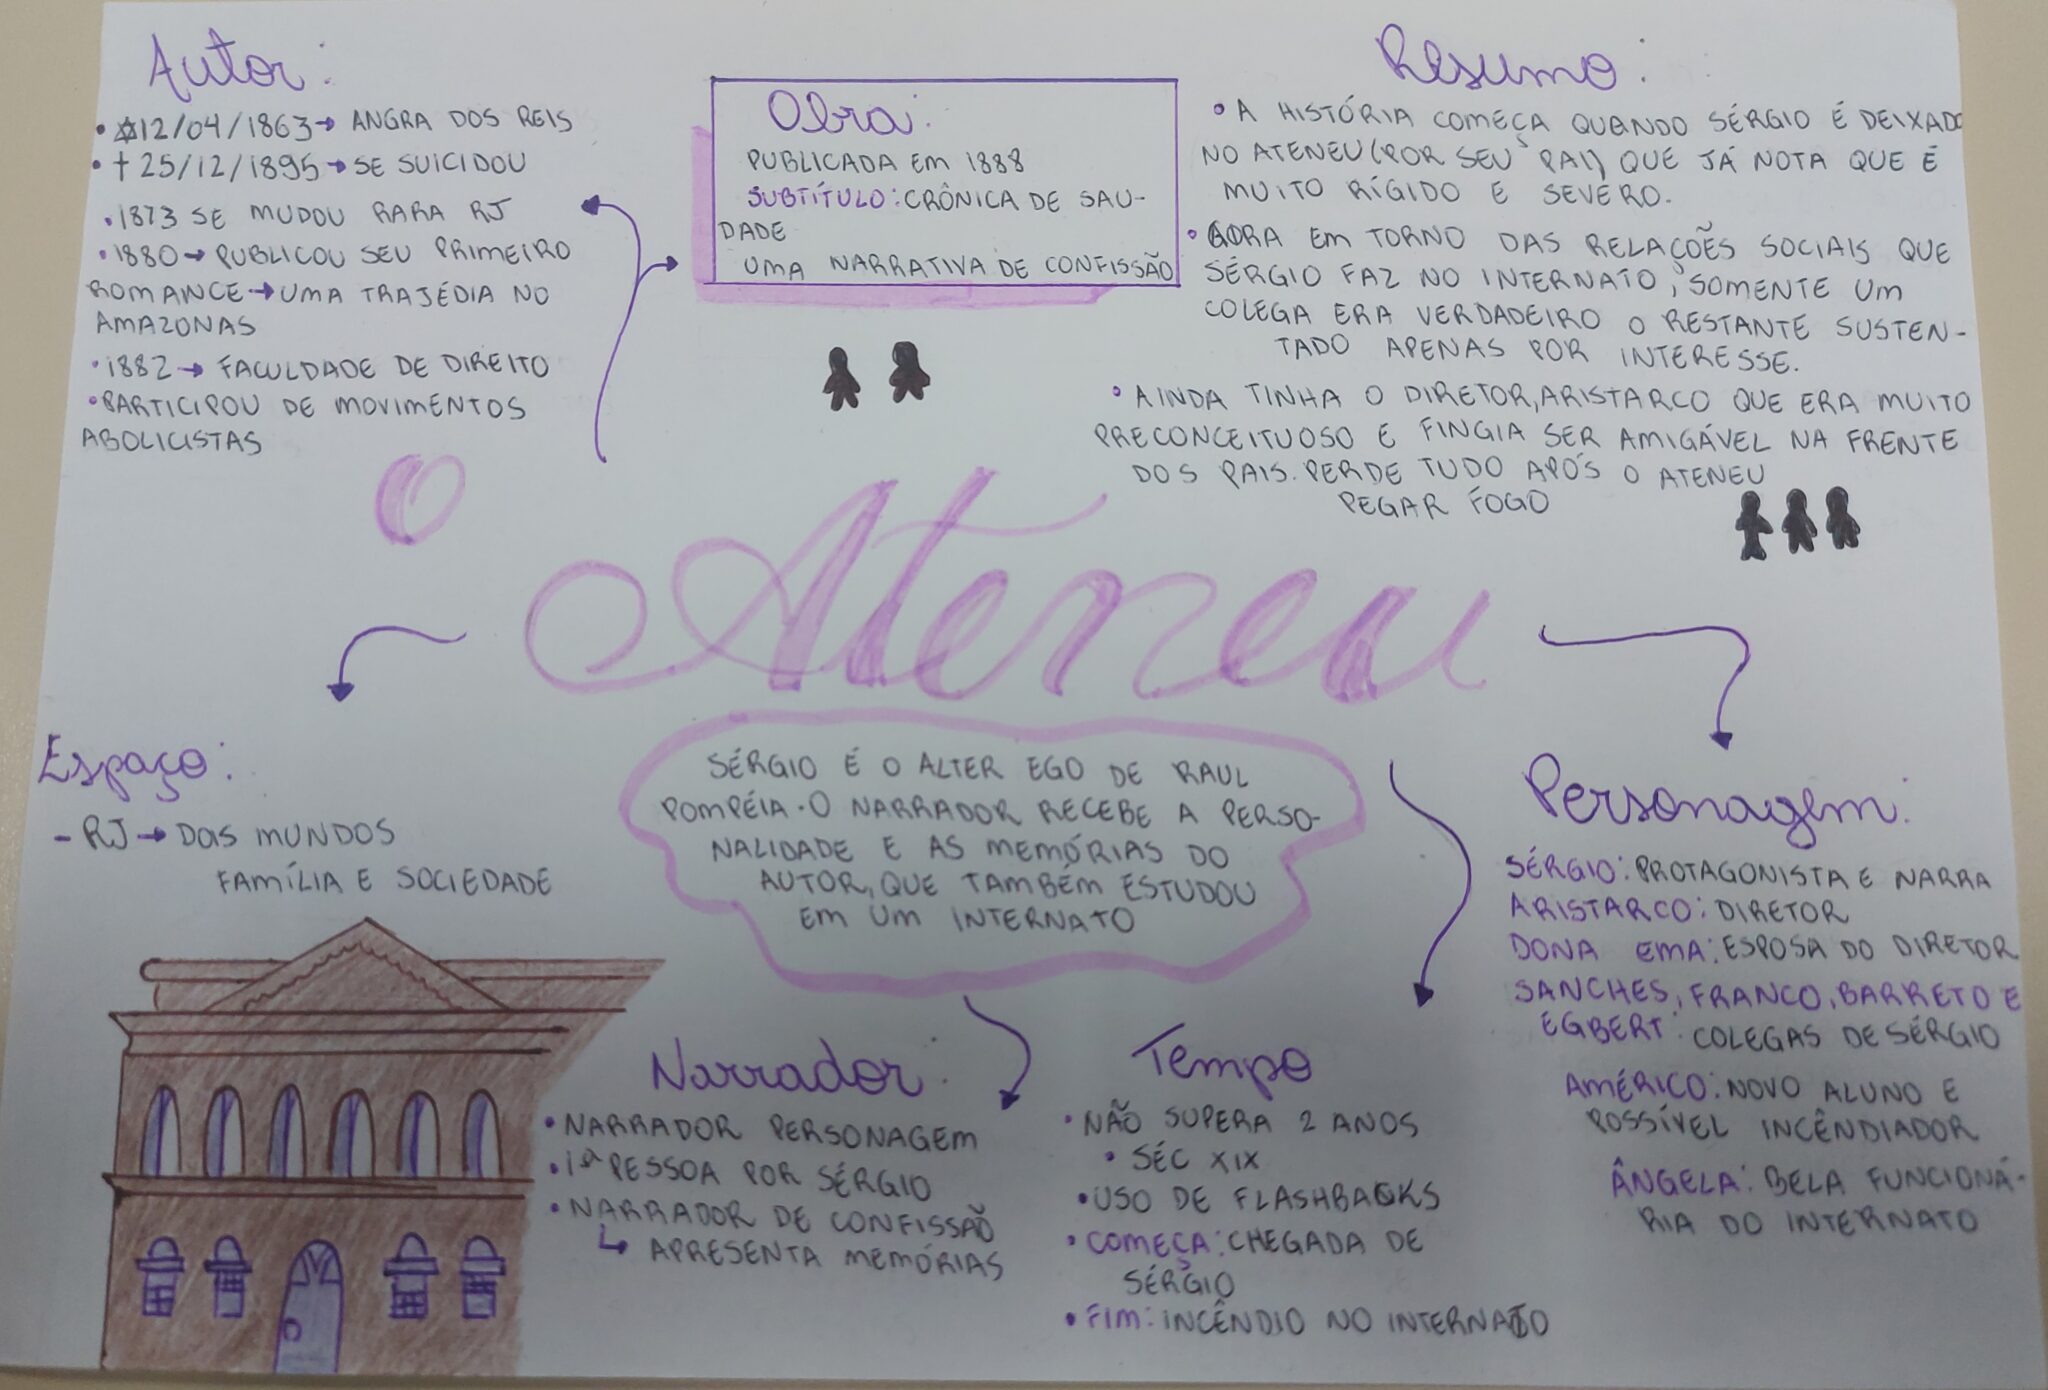 Autor:
• ✡12/04/1863→ ANGRA DOS REIS
• † 25/12/1895→SE SUICIDOU
• 1873 SE MUDOU PARA RJ
• 1880→PUBLICOU SEU PRIMEIRO
ROMANCE→UMA TRAJÉDIA NO
AMAZONAS
• 1882→ FACULDADE DE DIREITO
• PARTICIPOU DE MOVIMENTOS
ABOLICISTAS
Obra:
PUBLICADA EM 1888
SUBTÍTULO: CRÔNICA DE SAU-
DADE
UMA NARRATIVA DE CONFISSÃO
Resumo:
• A HISTÓRIA COMEÇA QUANDO SÉRGIO É DEIXADO
NO ATENEU (POR SEU PAI) QUE JÁ NOTA QUE É
MUITO RÍGIDO E SEVERO.
• GORA EM TORNO DAS RELAÇÕES SOCIAIS QUE
SÉRGIO FAZ NO INTERNATO, SOMENTE UM
COLEGA ERA VERDADEIRO O RESTANTE SUSTEN-
TADO APENAS POR INTERESSE.
• AINDA TINHA O DIRETOR, ARISTARCO QUE ERA MUITO
PRECONCEITUOSO E FINGIA SER AMIGÁVEL NA FRENTE
DOS PAIS. PERDE TUDO APÓS O ATENEU
PEGAR FOGO
O Ateneu
SÉRGIO É O ALTER EGO DE RAUL
POMPÉIA. O NARRADOR RECEBE A PERSO-
NALIDADE E AS MEMÓRIAS DO
AUTOR, QUE TAMBÉM ESTUDOU
EM UM INTERNATO
Espaço:
- RJ→DOIS MUNDOS
FAMÍLIA E SOCIEDADE
Narrador:
• NARRADOR PERSONAGEM
• 1ª PESSOA POR SÉRGIO
• NARRADOR DE CONFISSÃO
↳ APRESENTA MEMÓRIAS
Tempo
• NÃO SUPERA 2 ANOS
• SÉC XIX
• USO DE FLASHBACKS
• COMEÇA: CHEGADA DE
SÉRGIO
• FIM: INCÊNDIO NO INTERNATO
Personagem:
SÉRGIO: PROTAGONISTA E NARRA
ARISTARCO: DIRETOR
DONA EMA: ESPOSA DO DIRETOR
SANCHES, FRANCO, BARRETO E
EGBERT: COLEGAS DE SÉRGIO
AMÉRICO: NOVO ALUNO E
POSSÍVEL INCÊNDIADOR
ÂNGELA: BELA FUNCIONÁ-
RIA DO INTERNATO